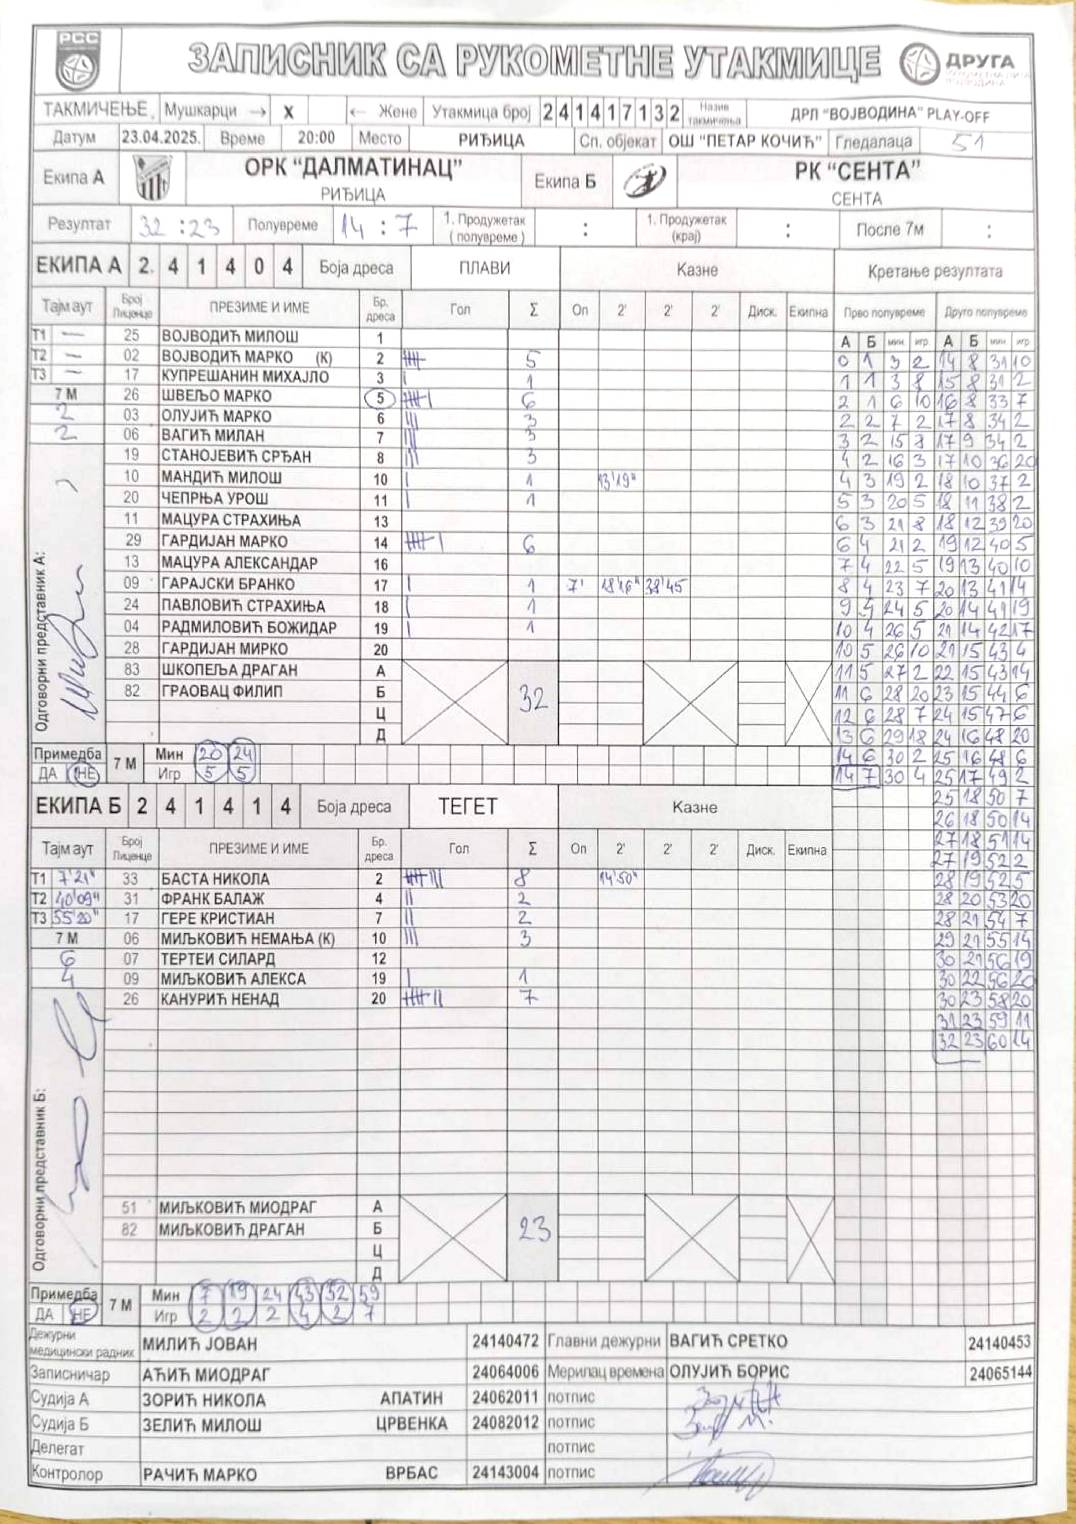 РСС
ЗАПИСНИК СА РУКОМЕТНЕ УТАКМИЦЕ
ДРУГА
ТАКМИЧЕЊЕ Мушкарци → X ← Жене Утакмица број 2 4 1 4 1 7 1 3 2 Назив такмичења ДРЛ "ВОЈВОДИНА" PLAY-OFF
Датум 23.04.2025. Време 20:00 Место РИЂИЦА Сп. објекат ОШ "ПЕТАР КОЧИЋ" Гледалаца 51
Екипа А ОРК "ДАЛМАТИНАЦ" РИЂИЦА Екипа Б РК "СЕНТА" СЕНТА
Резултат 32 : 23 Полувреме 14 : 7 1. Продужетак (полувреме) : 1. Продужетак (крај) : После 7м :
ЕКИПА А 2. 4 1 4 0 4 Боја дреса ПЛАВИ Казне Кретање резултата
Тајм аут Број Лиценце ПРЕЗИМЕ И ИМЕ Бр. дреса Гол Σ Оп 2' 2' 2' Диск. Екипна Прво полувреме Друго полувреме
А Б мин. игр. А Б мин. игр.
Т1 — 25 ВОЈВОДИЋ МИЛОШ 1
Т2 — 02 ВОЈВОДИЋ МАРКО (К) 2 5 0 1 3 2 14 8 31 10
Т3 — 17 КУПРЕШАНИН МИХАЈЛО 3 1 1 1 3 8 15 8 31 2
7 М 26 ШВЕЉО МАРКО 5 6 2 1 6 10 16 8 33 7
2 03 ОЛУЈИЋ МАРКО 6 3 2 2 7 2 17 8 34 2
2 06 ВАГИЋ МИЛАН 7 3 3 2 15 8 17 9 34 2
19 СТАНОЈЕВИЋ СРЂАН 8 3 4 2 16 3 17 10 36 20
10 МАНДИЋ МИЛОШ 10 1 13'19" 4 3 19 2 18 10 37 2
20 ЧЕПРЊА УРОШ 11 1 5 3 20 5 18 11 38 2
11 МАЦУРА СТРАХИЊА 13 6 3 21 8 18 12 39 20
29 ГАРДИЈАН МАРКО 14 6 6 4 21 2 19 12 40 5
13 МАЦУРА АЛЕКСАНДАР 16 7 4 22 5 19 13 40 10
09 ГАРАЈСКИ БРАНКО 17 1 7' 18'16" 38'45 8 4 23 7 20 13 41 14
24 ПАВЛОВИЋ СТРАХИЊА 18 1 9 4 24 5 20 14 41 19
04 РАДМИЛОВИЋ БОЖИДАР 19 1 10 4 26 5 21 14 42 17
28 ГАРДИЈАН МИРКО 20 10 5 26 10 21 15 43 4
83 ШКОПЕЉА ДРАГАН А 11 5 27 2 22 15 43 14
82 ГРАОВАЦ ФИЛИП Б 32 11 6 28 20 23 15 44 6
Ц 12 6 28 7 24 15 47 6
Д 13 6 29 18 24 16 48 20
Одговорни представник А:
Примедба 7 М Мин 20 24 14 6 30 2 25 16 48 6
ДА НЕ Игр 5 5 14 7 30 4 25 17 49 2
ЕКИПА Б 2 4 1 4 1 4 Боја дреса ТЕГЕТ Казне 25 18 50 7
26 18 50 14
Тајм аут Број Лиценце ПРЕЗИМЕ И ИМЕ Бр. дреса Гол Σ Оп 2' 2' 2' Диск. Екипна 27 18 51 14
27 19 52 2
Т1 7'21" 33 БАСТА НИКОЛА 2 8 14'50" 28 19 52 5
Т2 40'09" 31 ФРАНК БАЛАЖ 4 2 28 20 53 20
Т3 55'20" 17 ГЕРЕ КРИСТИАН 7 2 28 21 54 7
7 М 06 МИЉКОВИЋ НЕМАЊА (К) 10 3 29 21 55 14
6 07 ТЕРТЕИ СИЛАРД 12 30 21 56 19
4 09 МИЉКОВИЋ АЛЕКСА 19 1 30 22 56 20
26 КАНУРИЋ НЕНАД 20 7 30 23 58 20
31 23 59 11
32 23 60 14
Одговорни представник Б:
51 МИЉКОВИЋ МИОДРАГ А
82 МИЉКОВИЋ ДРАГАН Б 23
Ц
Д
Примедба 7 М Мин 7 19 24 43 52 59
ДА НЕ Игр 2 2 2 4 2 7
Дежурни медицински радник МИЛИЋ ЈОВАН 24140472 Главни дежурни ВАГИЋ СРЕТКО 24140453
Записничар АЋИЋ МИОДРАГ 24064006 Мерилац времена ОЛУЈИЋ БОРИС 24065144
Судија А ЗОРИЋ НИКОЛА АПАТИН 24062011 потпис
Судија Б ЗЕЛИЋ МИЛОШ ЦРВЕНКА 24082012 потпис
Делегат потпис
Контролор РАЧИЋ МАРКО ВРБАС 24143004 потпис